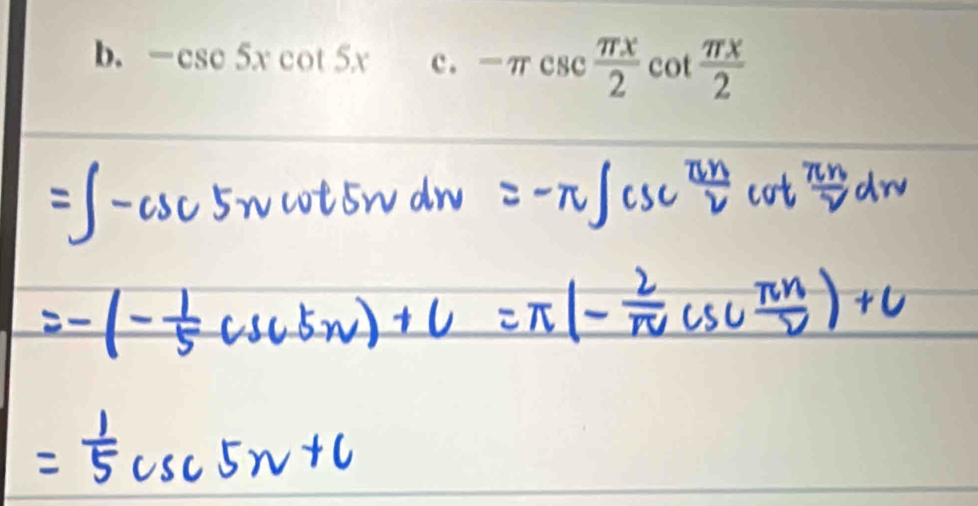 b. −csc 5x cot 5x c. −π csc πx/2 cot πx/2
= ∫ -csc 5x cot 5x dx = -π ∫ csc πx/2 cot πx/2 dx
= -(-1/5 csc 5x) + C = π(-2/π csc πx/2) + C
= 1/5 csc 5x + C